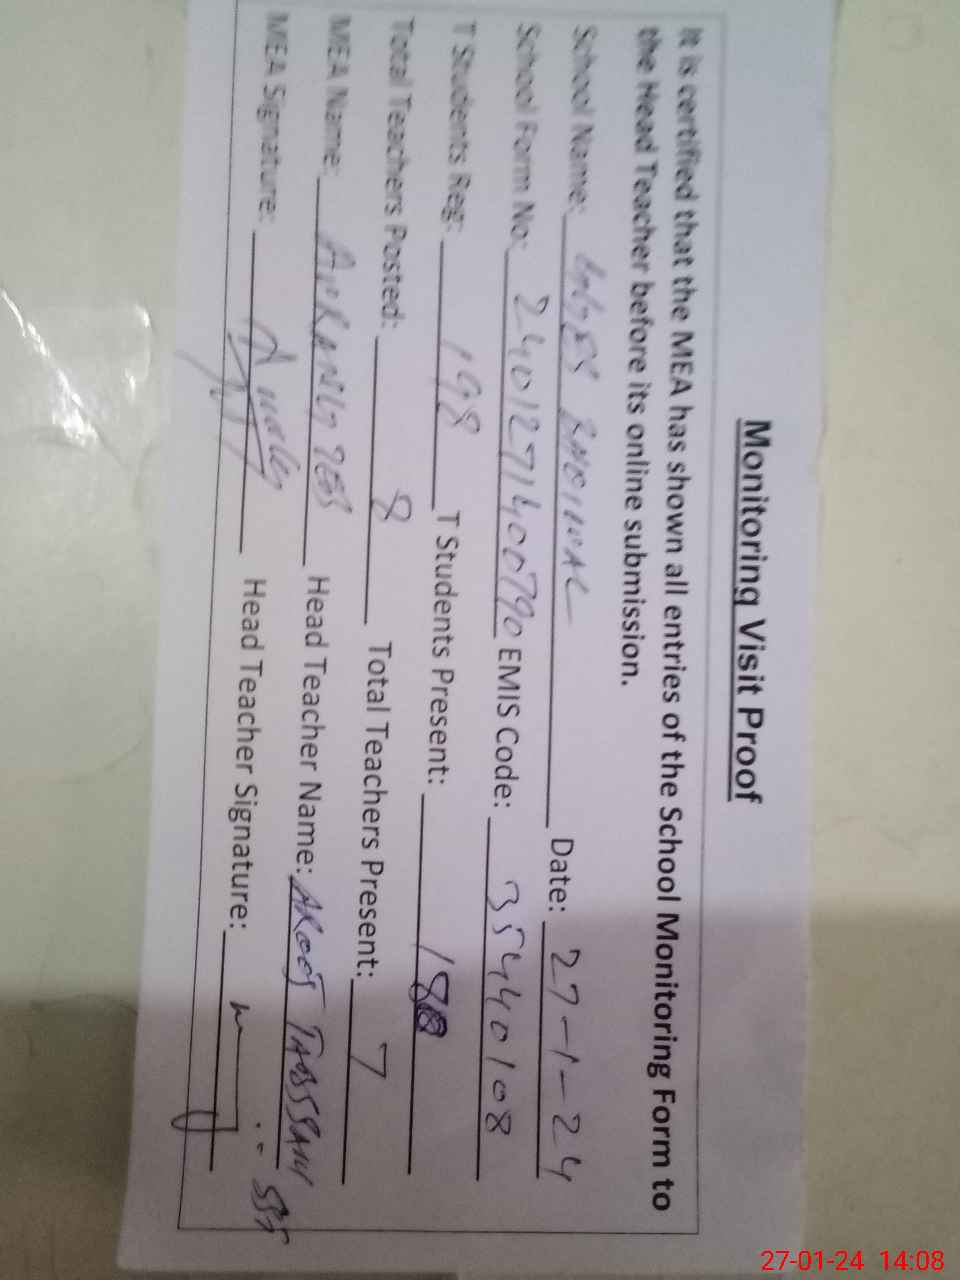 Monitoring Visit Proof
It is certified that the MEA has shown all entries of the School Monitoring Form to
the Head Teacher before its online submission.
School Name: Date: 27-1-24
School Form No: 2401271400790 EMIS Code: 35440108
T Students Reg: 198 T Students Present:
Total Teachers Posted: 8 Total Teachers Present: 7
MEA Name: Head Teacher Name:
MEA Signature: Head Teacher Signature:
27-01-24 14:08